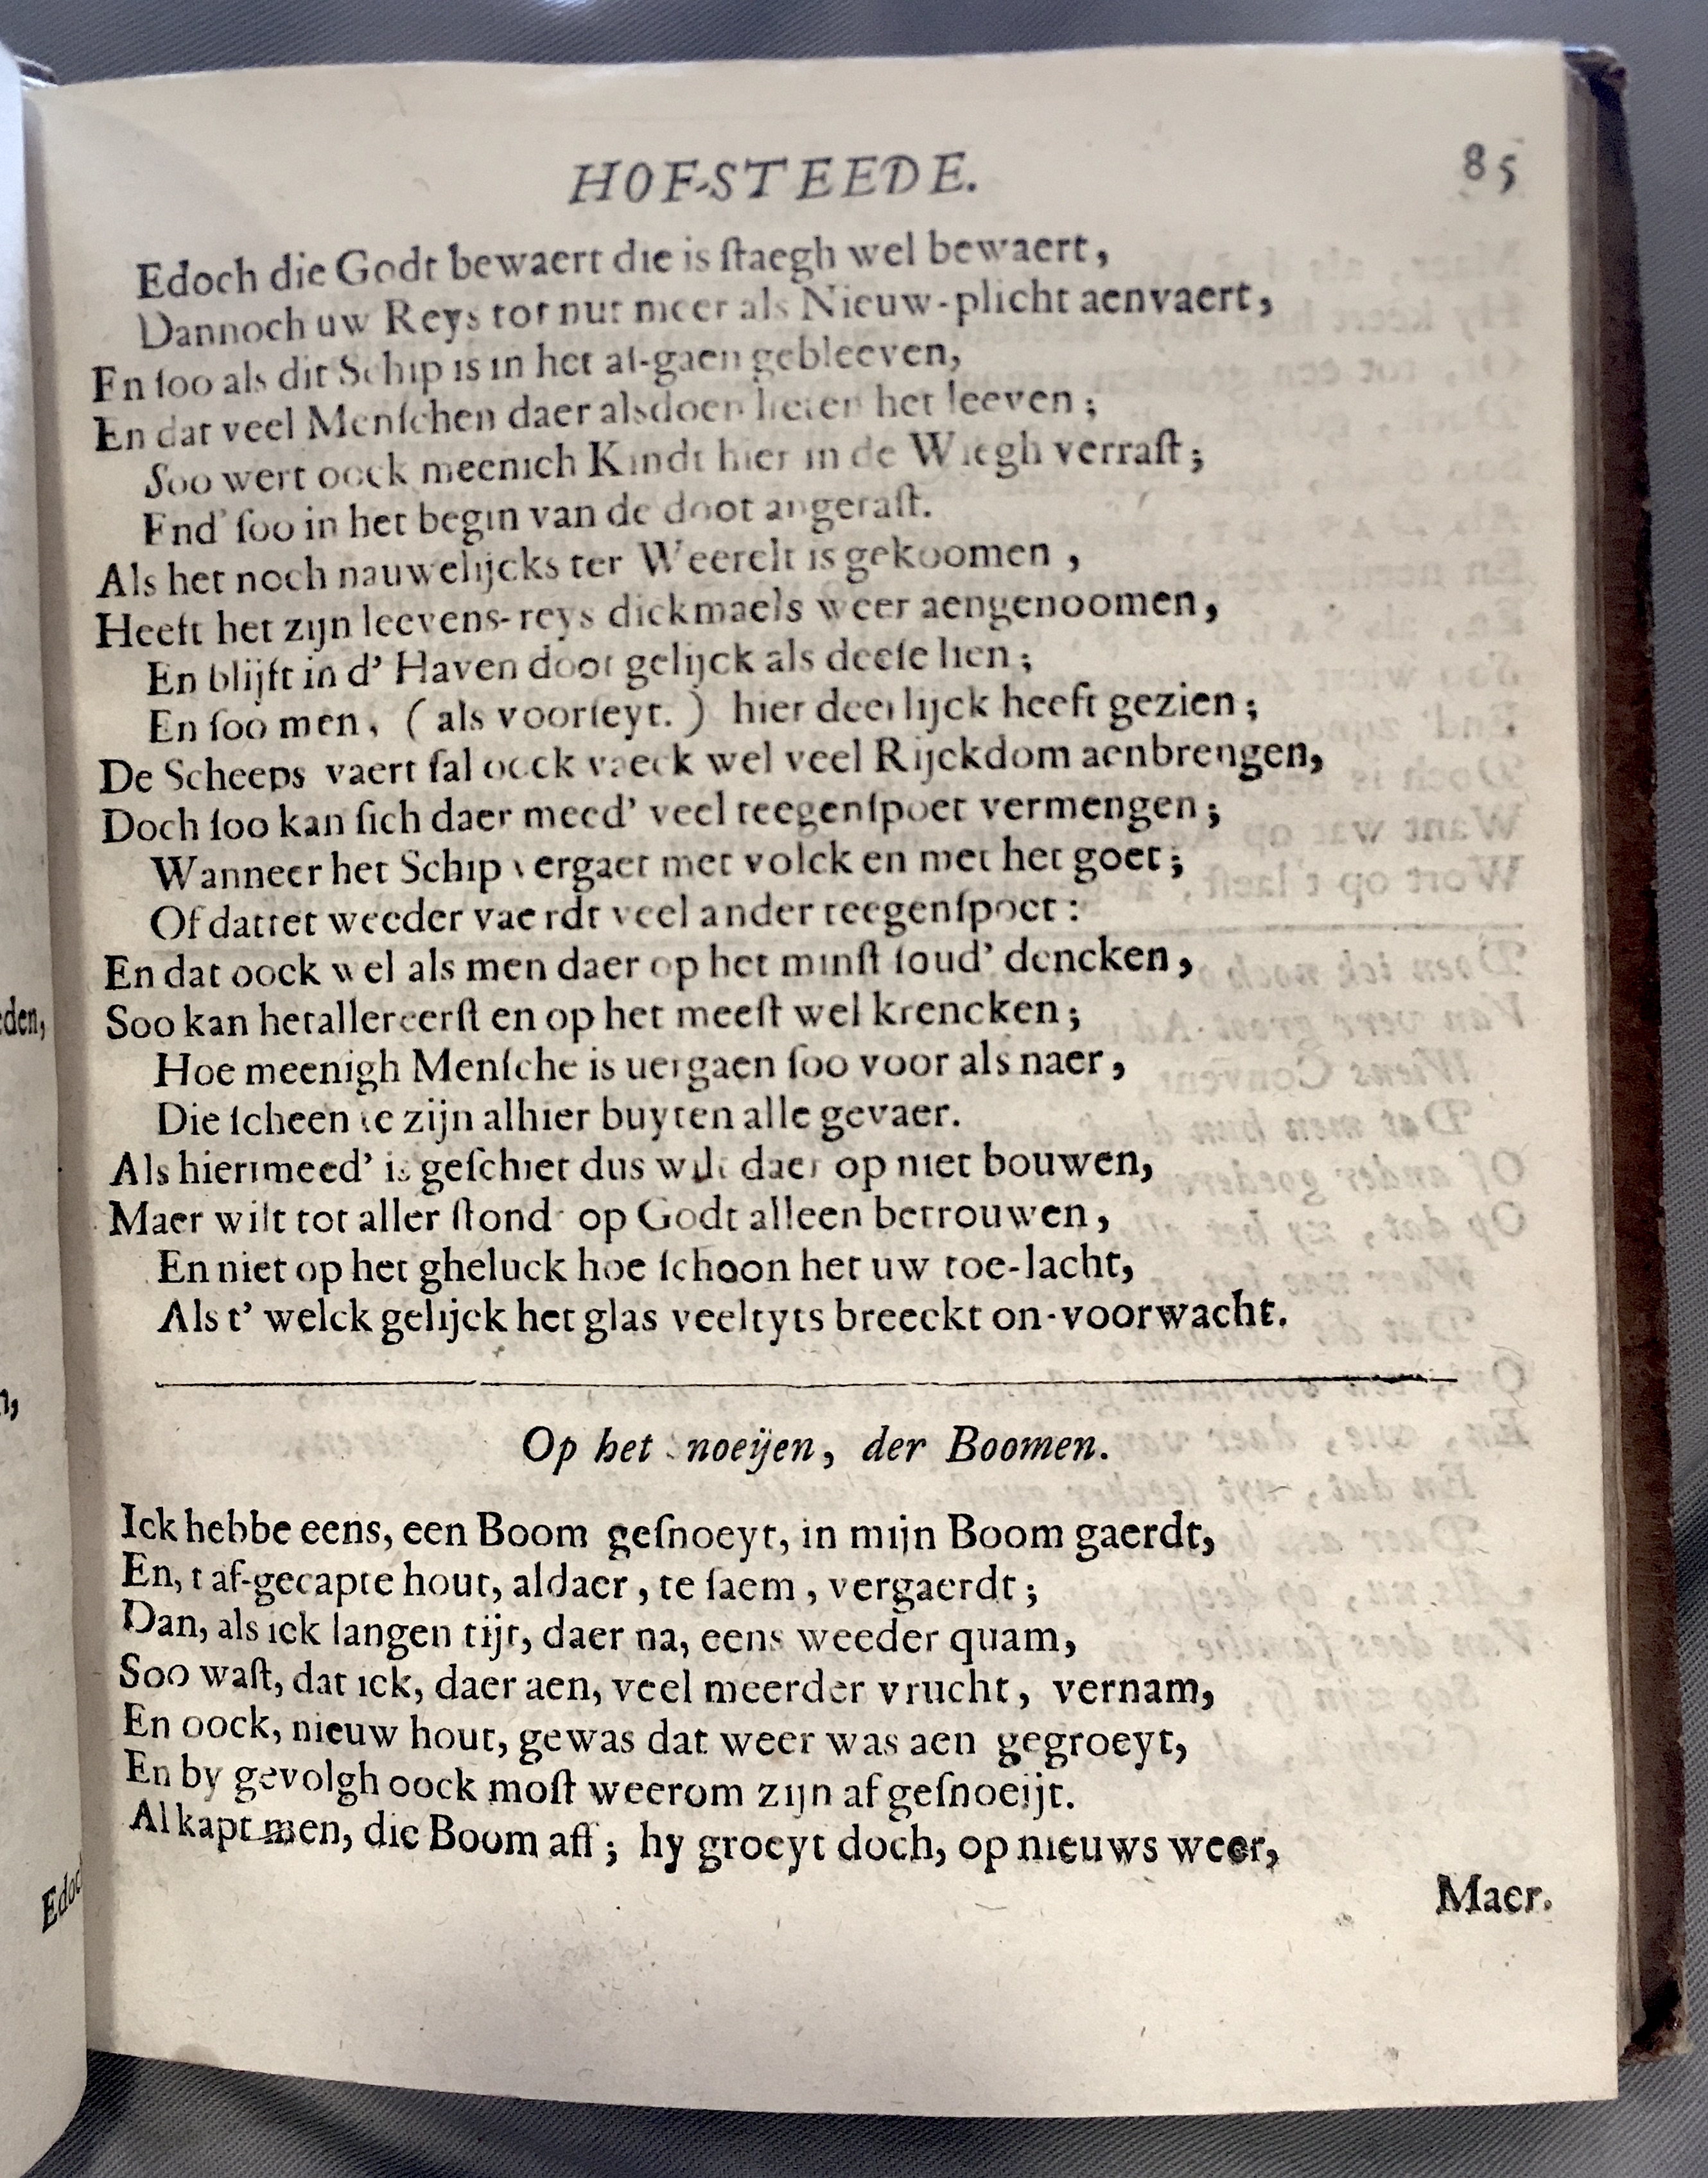 HOF-STEEDE. 85
Edoch die Godt bewaert die is ſtaegh wel bewaert,
Dannoch uw Reys tot nut meer als Nieuw-plicht aenvaert,
En ſoo als dit Schip is in het af-gaen gebleeven,
En dat veel Menſchen daer alsdoen lieten het leeven;
Soo wert oock meenich Kindt hier in de Wiegh verraſt;
End' ſoo in het begin van de doot angeraſt.
Als het noch nauwelijcks ter Weerelt is gekoomen,
Heeft het zijn leevens-reys dickmaels weer aengenoomen,
En blijft in d' Haven doot gelijck als deeſe lien;
En ſoo men, (als voorſeyt.) hier deerlijck heeft gezien;
De Scheeps vaert ſal oock vaeck wel veel Rijckdom aenbrengen,
Doch ſoo kan ſich daer meed' veel teegenſpoet vermengen;
Wanneer het Schip vergaet met volck en met het goet;
Of dattet weeder vaerdt veel ander teegenſpoet:
En dat oock wel als men daer op het minſt ſoud' dencken,
Soo kan hetallereerſt en op het meeſt wel krencken;
Hoe meenigh Menſche is uergaen ſoo voor als naer,
Die ſcheen te zijn alhier buyten alle gevaer.
Als hiermeed' is geſchiet dus wilt daer op niet bouwen,
Maer wilt tot aller ſtond' op Godt alleen betrouwen,
En niet op het gheluck hoe ſchoon het uw toe-lacht,
Als t' welck gelijck het glas veeltyts breeckt on-voorwacht.
Op het snoeijen, der Boomen.
Ick hebbe eens, een Boom geſnoeyt, in mijn Boom gaerdt,
En, t af-gecapte hout, aldaer, te ſaem, vergaerdt;
Dan, als ick langen tijt, daer na, eens weeder quam,
Soo waſt, dat ick, daer aen, veel meerder vrucht, vernam,
En oock, nieuw hout, gewas dat weer was aen gegroeyt,
En by gevolgh oock moſt weerom zijn af geſnoeijt.
Al kapt men, die Boom aff; hy groeyt doch, op nieuws weer,
Maer.
eden,
n,
Edoc